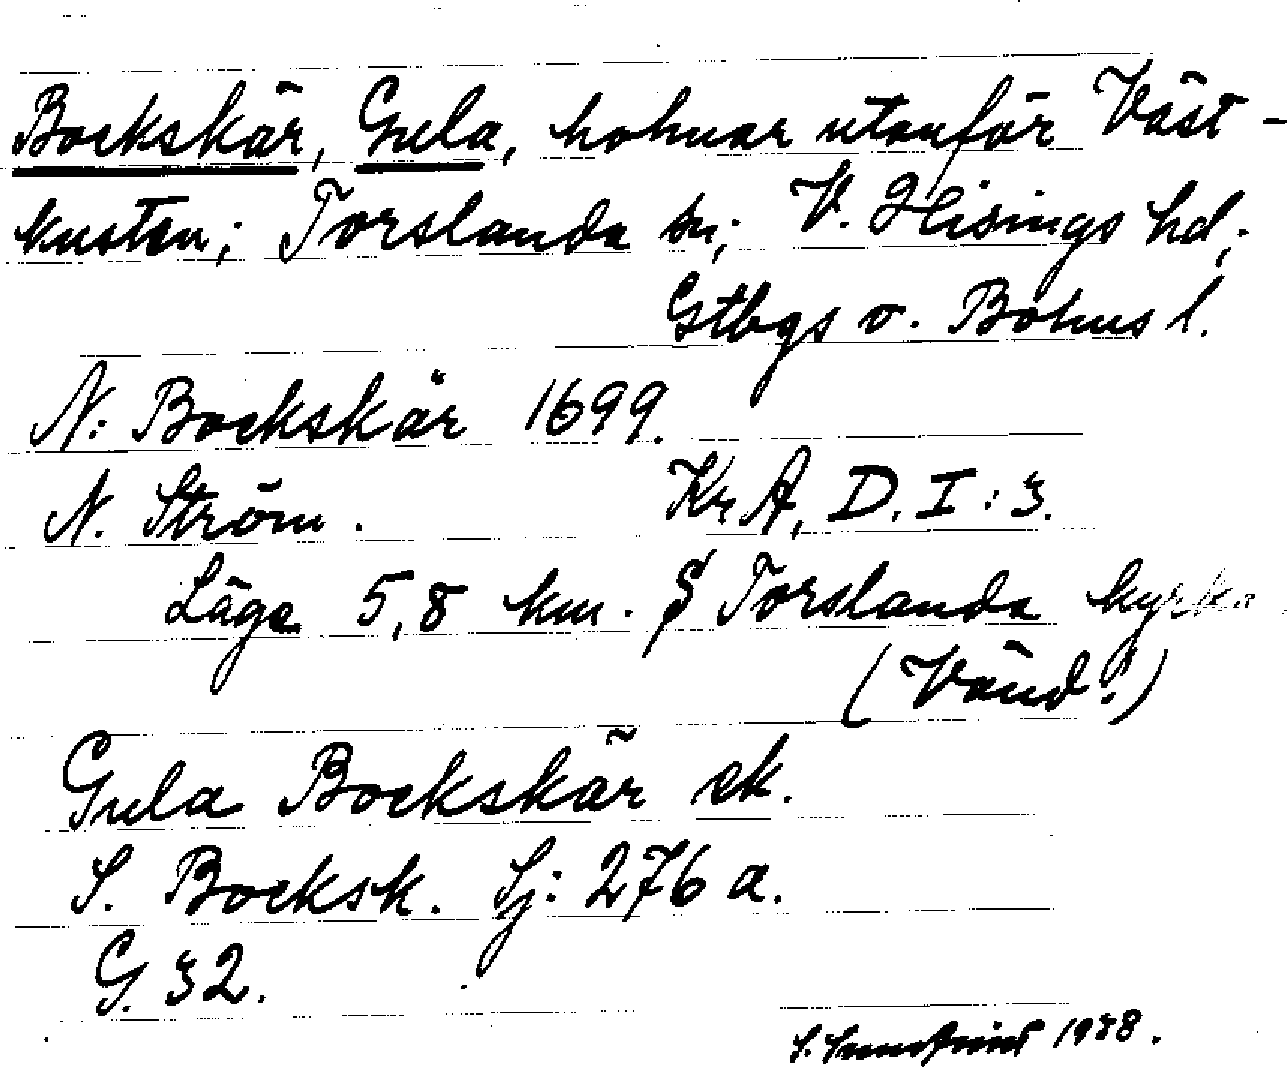 Bockskär, Gula, holmar utanför Väst-
kusten; Torslanda sn; V. Hisings hd;
Gtbgs o. Bohus l.
N: Bockskär 1699.
N. Ström. Kr A, D. I: 3.
Läge 5,8 km. S Torslanda kyrka
(Vänd!)
Gula Bockskär ek.
S. Bocksk. Sj: 276 a.
G. 32.
S. 1938.